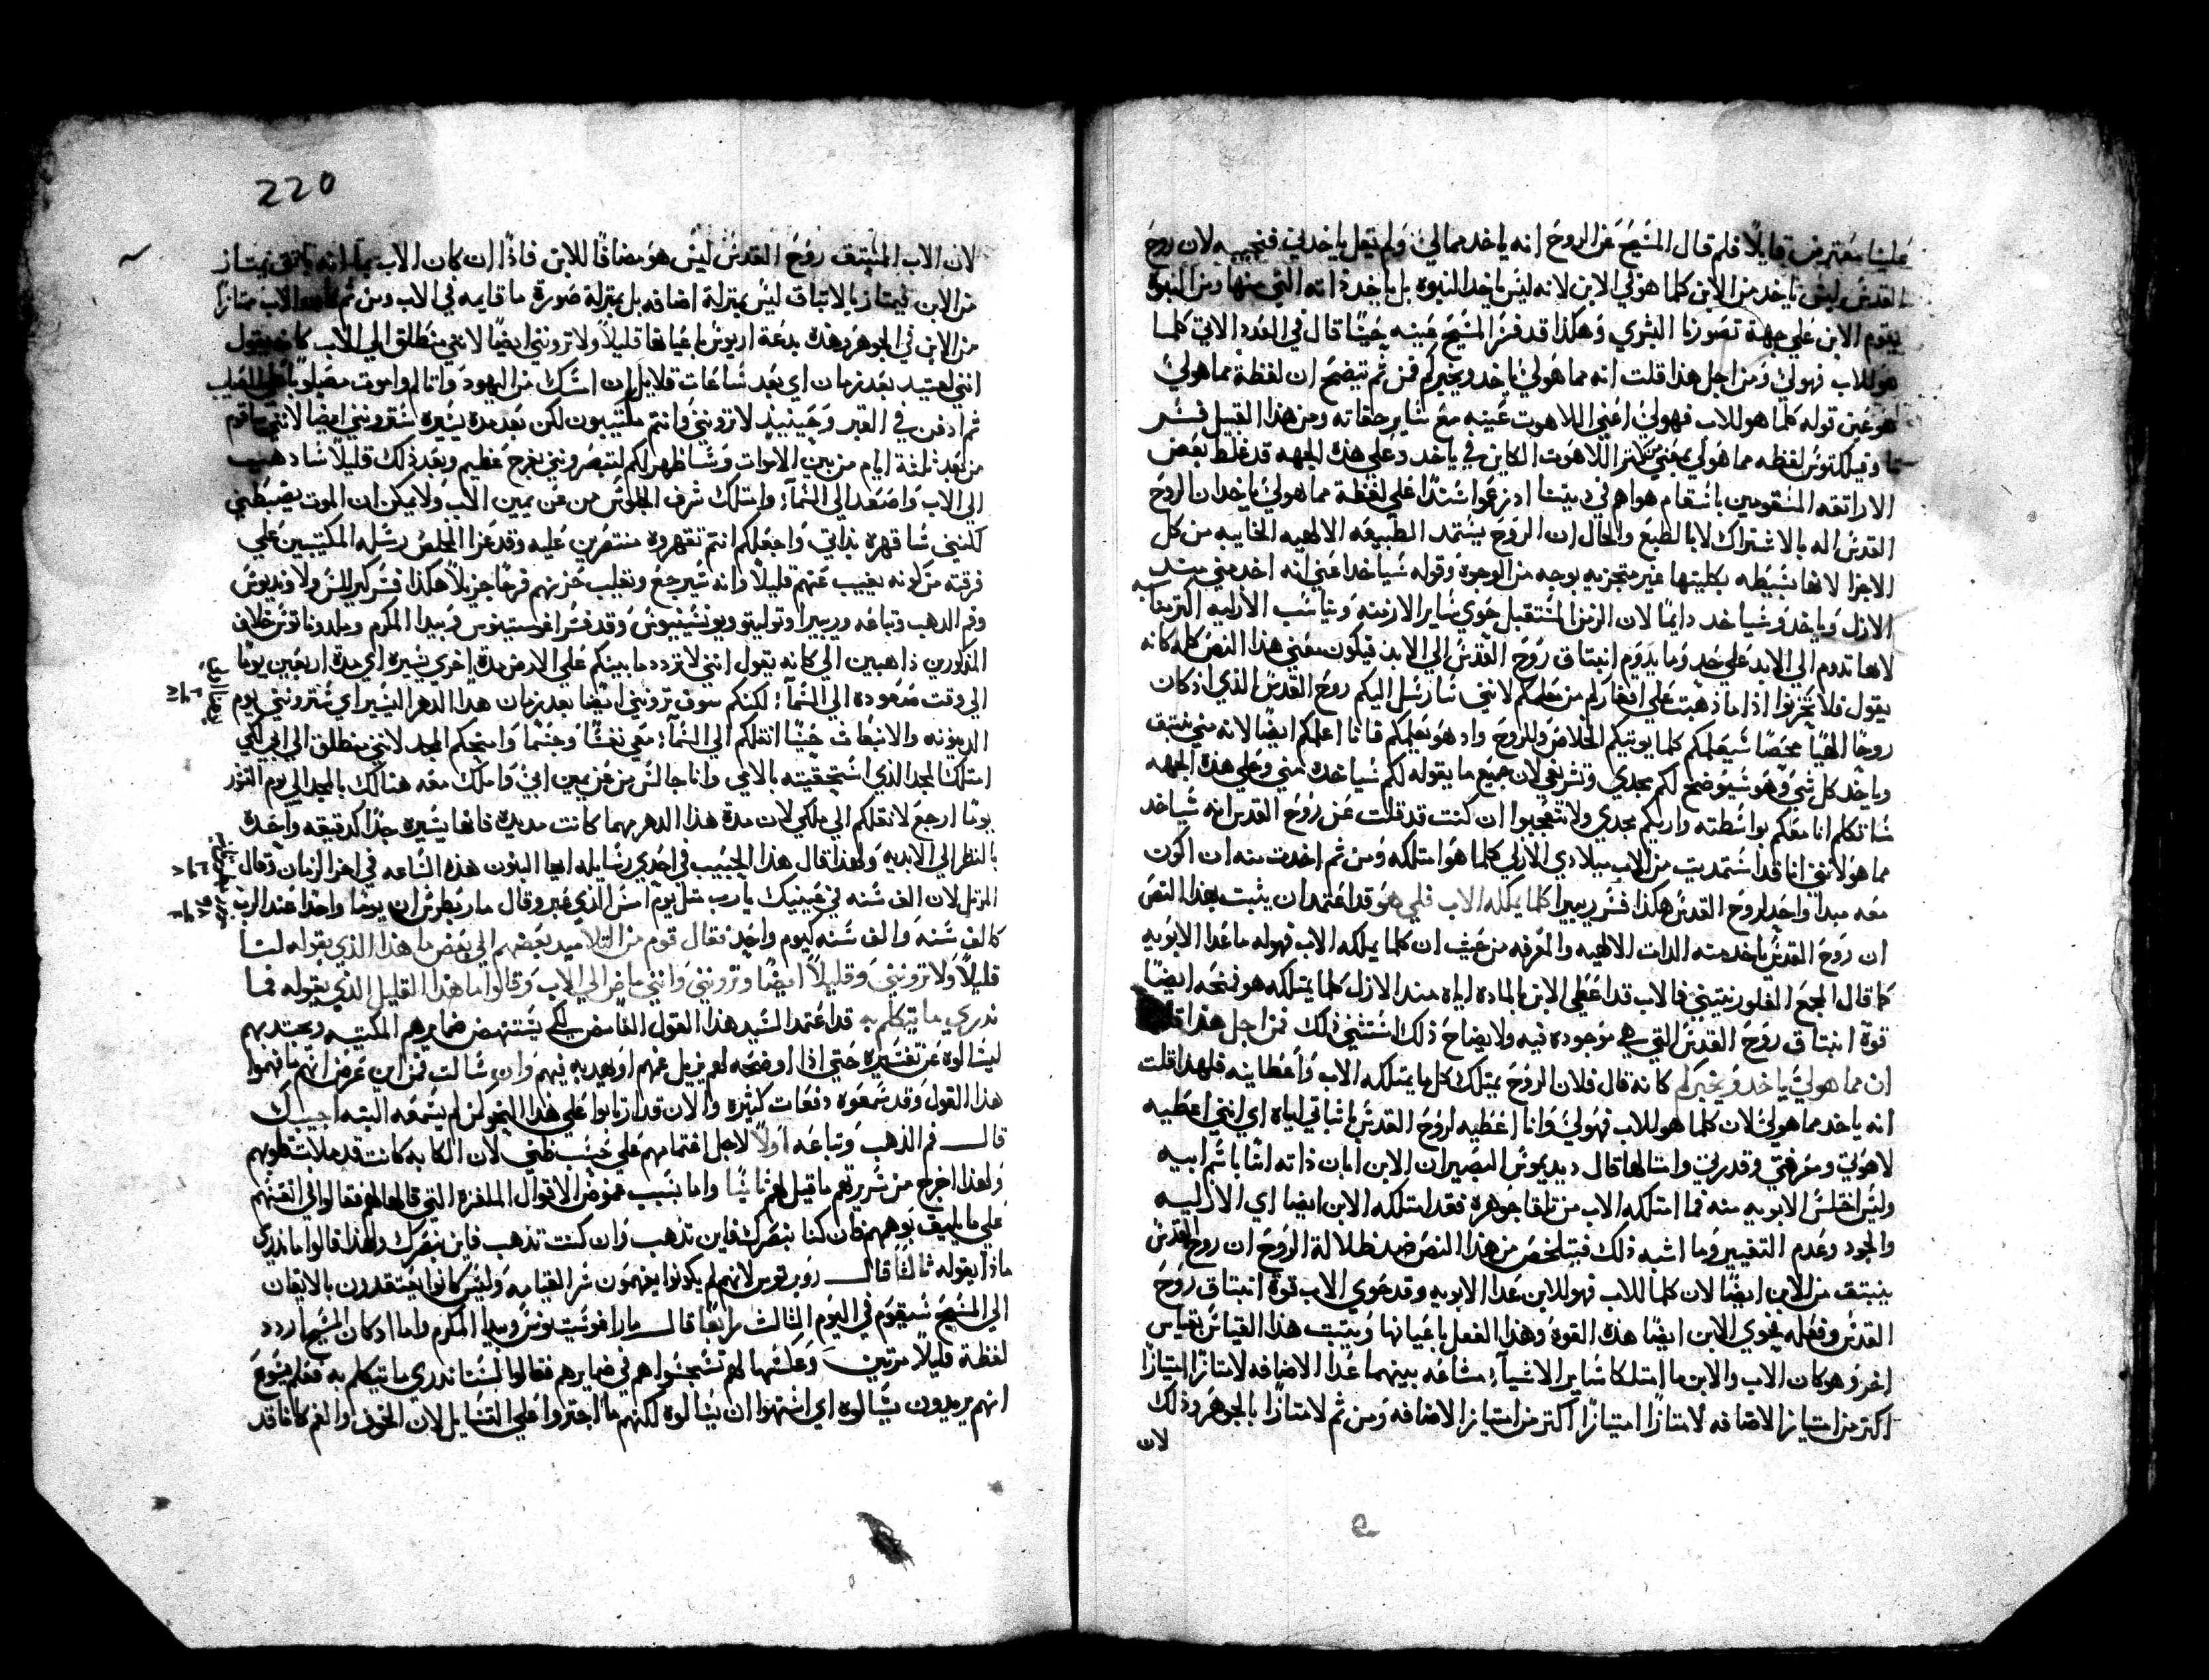 علينا معترض قايلًا فلم قال المسيح عن الروح انه ياخد مما لي ولم يقل ياخدني فنجيبه لان روح
القدس ليس ياخد من الابن كلما هو في الابن لانه ليس ياخد البنوه بل ياخد ذاته التي منها ومن البنوة
يقوم الابن علي جهة تصورنا البشري وهكذا قد فسر المسيح عينه حيثًا قال في العدد الاتي كلما
هو للاب فهو لي ومن اجل هذا قلت انه مما هو لي ياخد ويخبركم فمن ثم يتضح ان لفظة مما هو لي
هو عين قوله كلما هو للاب فهو لي اعني اللاهوت عينه مع ساير حقاته ومن هذا القبيل فسر
لفظه مما هو لي بمعني من كنز اللاهوت الكاين في ياخد وعلي هذه الجهه قد غلط بعض
الاراتقه المسقومين باسقام هواهم في ديننا اذ زعموا سندًا علي لفظة مما هو لي ياخد ان الروح
القدس اله بالاشتراك لا بالطبع والحال ان الروح يستمد الطبيعه الالهيه الخايبه من كل
الاجزا لانها بسيطه بكليتها غير متجزيه بوجه من الوجوه وقوله سياخد اعني انه اخد مني منذ
الازل وياخد وسياخد دايمًا لان الزمن المستقبل حوي ساير الازمنه ويناسب الازليه اكتر
لانها تدوم الي الابد علي حد وما يدوم انبتاق روح القدس الي الابد فيكون معني هذا النص كله كانه
يقول فلا تحزنوا اذا ما ذهبت علي انفاركم من معلمكم لانني سارسل اليكم روح القدس الذي اذ كان
روحًا الهيًا محضًا سيعلمكم كلما يوتيكم الخلاص وللروح واذ هو يعلمكم فانا اعلمكم ايضًا لانه مني منبتق
وياخد كل شي وهو سيوضح لكم مجدي وتشريفي لان جميع ما يقوله لكم سياخده مني وعلي هذه الجهه
ساتكلم انا معكم بواسطته واريكم مجدي ولا تتعجبوا ان كنت قد قلت عن روح القدس انه سياخد
مما هو لي لانني انا قد استمديت من الاب بميلادي الازلي كلما هو امتلكه ومن ثم اخدت منه ان اكون
معه مبدًا واحد لروح القدس هكذا فسر ريبيرا كلما يملكه الاب فلي هو قد اعتمد ان يثبت بهذا النص
ان روح القدس ياخد منه الدات الالهيه والمعرفه من حيث ان كلما يملكه الاب فهو له ما عدا الابويه
كما قال المجمع الفلورنتيني فالاب قد اعطي الابن بالماده اياه منذ الازل كلما يمتلكه هو فمنحه ايضًا
قوة انبتاق روح القدس التي هي موجوده فيه ولايضاح ذلك استثني ذلك فمن اجل هذا قلت
ان مما هو لي ياخد ويخبركم كانه قال فلان الروح يمتلك كل ما يمتلكه الاب واعطانيه فلهذا قلت
انه ياخد مما هو لي لان كلما هو للاب فهو لي وانا اعطيه لروح القدس بانباتي اياه اي انني اعطيه
لاهوتي ومعرفتي وقدرتي وامتالها قال ديديموس البصير ان الابن ابان ذاته ابنًا باسم ابيه
وليس اختلس الابويه منه فما امتلكه الاب من تلقا جوهره فقد امتلكه الابن ايضا اي الازليه
والجود وعدم التغيير وما اشبه ذلك فيتلخص من هذا النص ضد ضلالة الروح ان روح القدس
ينبتق من الابن ايضًا لان كلما للاب فهو للابن عدا الابويه وقد حوي الاب قوة انبتاق روح
القدس وفعله فيحوي الابن ايضًا هذه القوة وهذا الفعل باعيانها ويثبت هذا القياس بقياس
اخر وهو كان الاب والابن ما امتلكا ساير الاشيآ مشاعه بينهما عدا الاضافه لامتازا امتيازًا
اكتر من امتياز الاضافه لامتازا امتيازًا اكتر من امتياز الاضافه ومن ثم لامتازا بالجوهر وذلك
لان
220
لان الاب المنبتق روح القدس ليس هو مضافًا للابن فاذًا ان كان الاب بما انه ينبتق يمتاز
من الابن فيمتاز بالانبتاق ليس بمنزلة اضافه بل بمنزلة صورة ما قايمه في الاب ومن ثم الاب ممتازًا
من الابن في الجوهر وهذه بدعة اريوس باعيانها قليلًا ولا ترونني ايضًا لانني منطلق الي الاب كانه يقول
انني لعتيد بعد زمان اي بعد ساعات قلايل ان امسك من اليهود واتالم واموت مصلوبًا علي الصليب
ثم ادفن في القبر وحينيذ لا ترونني وانتم مكتيبون لكن بعد مدة يسيره سترونني ايضا لانني ساقوم
من بعد ثلثة ايام من بين الاموات وساظهر لكم لتبصرونني بفرح عظيم وبعد ذلك قليلًا ساذهب
الي الاب واصعد الي السمآ وامتلك شرف الجلوس من عن يمين الاب ولا يمكن ان الموت يضبطني
لكنني ساقهره بذاتي واجعلكم انتم تقهروه منتصرين عليه وقد عزا المخلص رسله المكتيبين علي
فرقته من كونه يغيب عنهم قليلًا وانه سيرجع ويقلب حزنهم فرحًا جزيلًا هكذا فسر كيرللس ولاونديوس
وفم الدهب وتباعه وريبيرا وتوليتو ويونسينيوس وقد فسر اغوستينوس وبيدا المكرم وملدوناتوس خلاف
المذكورين ذاهبين الي كانه يقول انني لا تردد ما بينكم علي الارض مدة اخري يسيره اي مدة اربعين يومًا
الي وقت صعوده الي السمآ لكنكم سوف ترونني ايضًا بعد زمان هذا الدهر اليسير اي سترونني يوم
الدينونه والانبعات حيثًا انقلكم الي السمآ معي نفسًا وجسمًا وامنحكم المجد لانني منطلق الي ابي لكي
امتلك المجد الذي استحقيته بالامي وانا جالس من عن يمين ابي واملك معه هنالك بالمجد الي يوم النشور
يومًا ارجع لانقلكم الي ملكي لان مدة هذا الدهر مهما كانت مديده فانها يسيره جدًا كدقيقه واحدة
بالنظر الي الابديه ولهذا قال هذا الحبيب في احدي رسايله ايها البنون هذه الساعه في اخر الزمان وقال
المرتل لان الف سنه في عينيك يا رب مثل يوم امس الذي غبر وقال مار بطرس ان يومًا واحدًا عند الرب
كالف سنه والف سنه كيوم واحد فقال قوم من التلاميد بعضهم الي بعض ما هذا الذي يقوله لنا
قليلًا ولا ترونني وقليلًا ايضًا وترونني وانني ماض الي الاب وقالوا ما هذا القليل الذي يقوله فما
ندري ما يتكلم به قد اعتمد السيد هذا القول الغامض لكي يستنهض ضمايرهم المكتيبه ويجتدبهم
ليسالوه عن تفسيره حتي اذا اوضحه لهم يزيل غمهم او يهديه فيهم وان سالت فمن اين عرض انهم ما فهموا
هذا القول وقد سمعوه دفعات كثيره والان قد ارتابوا علي هذا النحو كمن لم يسمعه البته اجيبك
قال فم الذهب وتباعه اولًا لاجل اغتمامهم علي حسب ظني لان الكابه كانت قد ملات قلوبهم
ولهذا اخرج من سريرتهم ما قيل لهم ثانيًا واما بسبب غموض الاقوال الملغزه التي قالها لهم فقالوا في انفسهم
علي ما يليق بوهمهم فان كنا نبصرك فاين تذهب وان كنت تذهب فاين نبصرك ولهذا قالوا ما ندري
ماذا يقوله ثالثًا قال روبرتوس لانهم لم يكونوا يفهمون سر القيامه وليس كانوا يعتقدون بالايقان
الي المسيح سيقوم في اليوم الثالث رابعًا قال مار اغوستينوس وبيدا المكرم واما اذ كان المسيح اردد
لفظة قليلًا مرتين وعكسها لهم تسجسوا هم في ضمايرهم فقالوا لسنا ندري ما يتكلم به فعلم يسوع
انهم يريدون يسالوه اي اشتهوا ان يسالوه لكنهم ما اجتروا علي التسايل لان الخوف والغم كانا قد